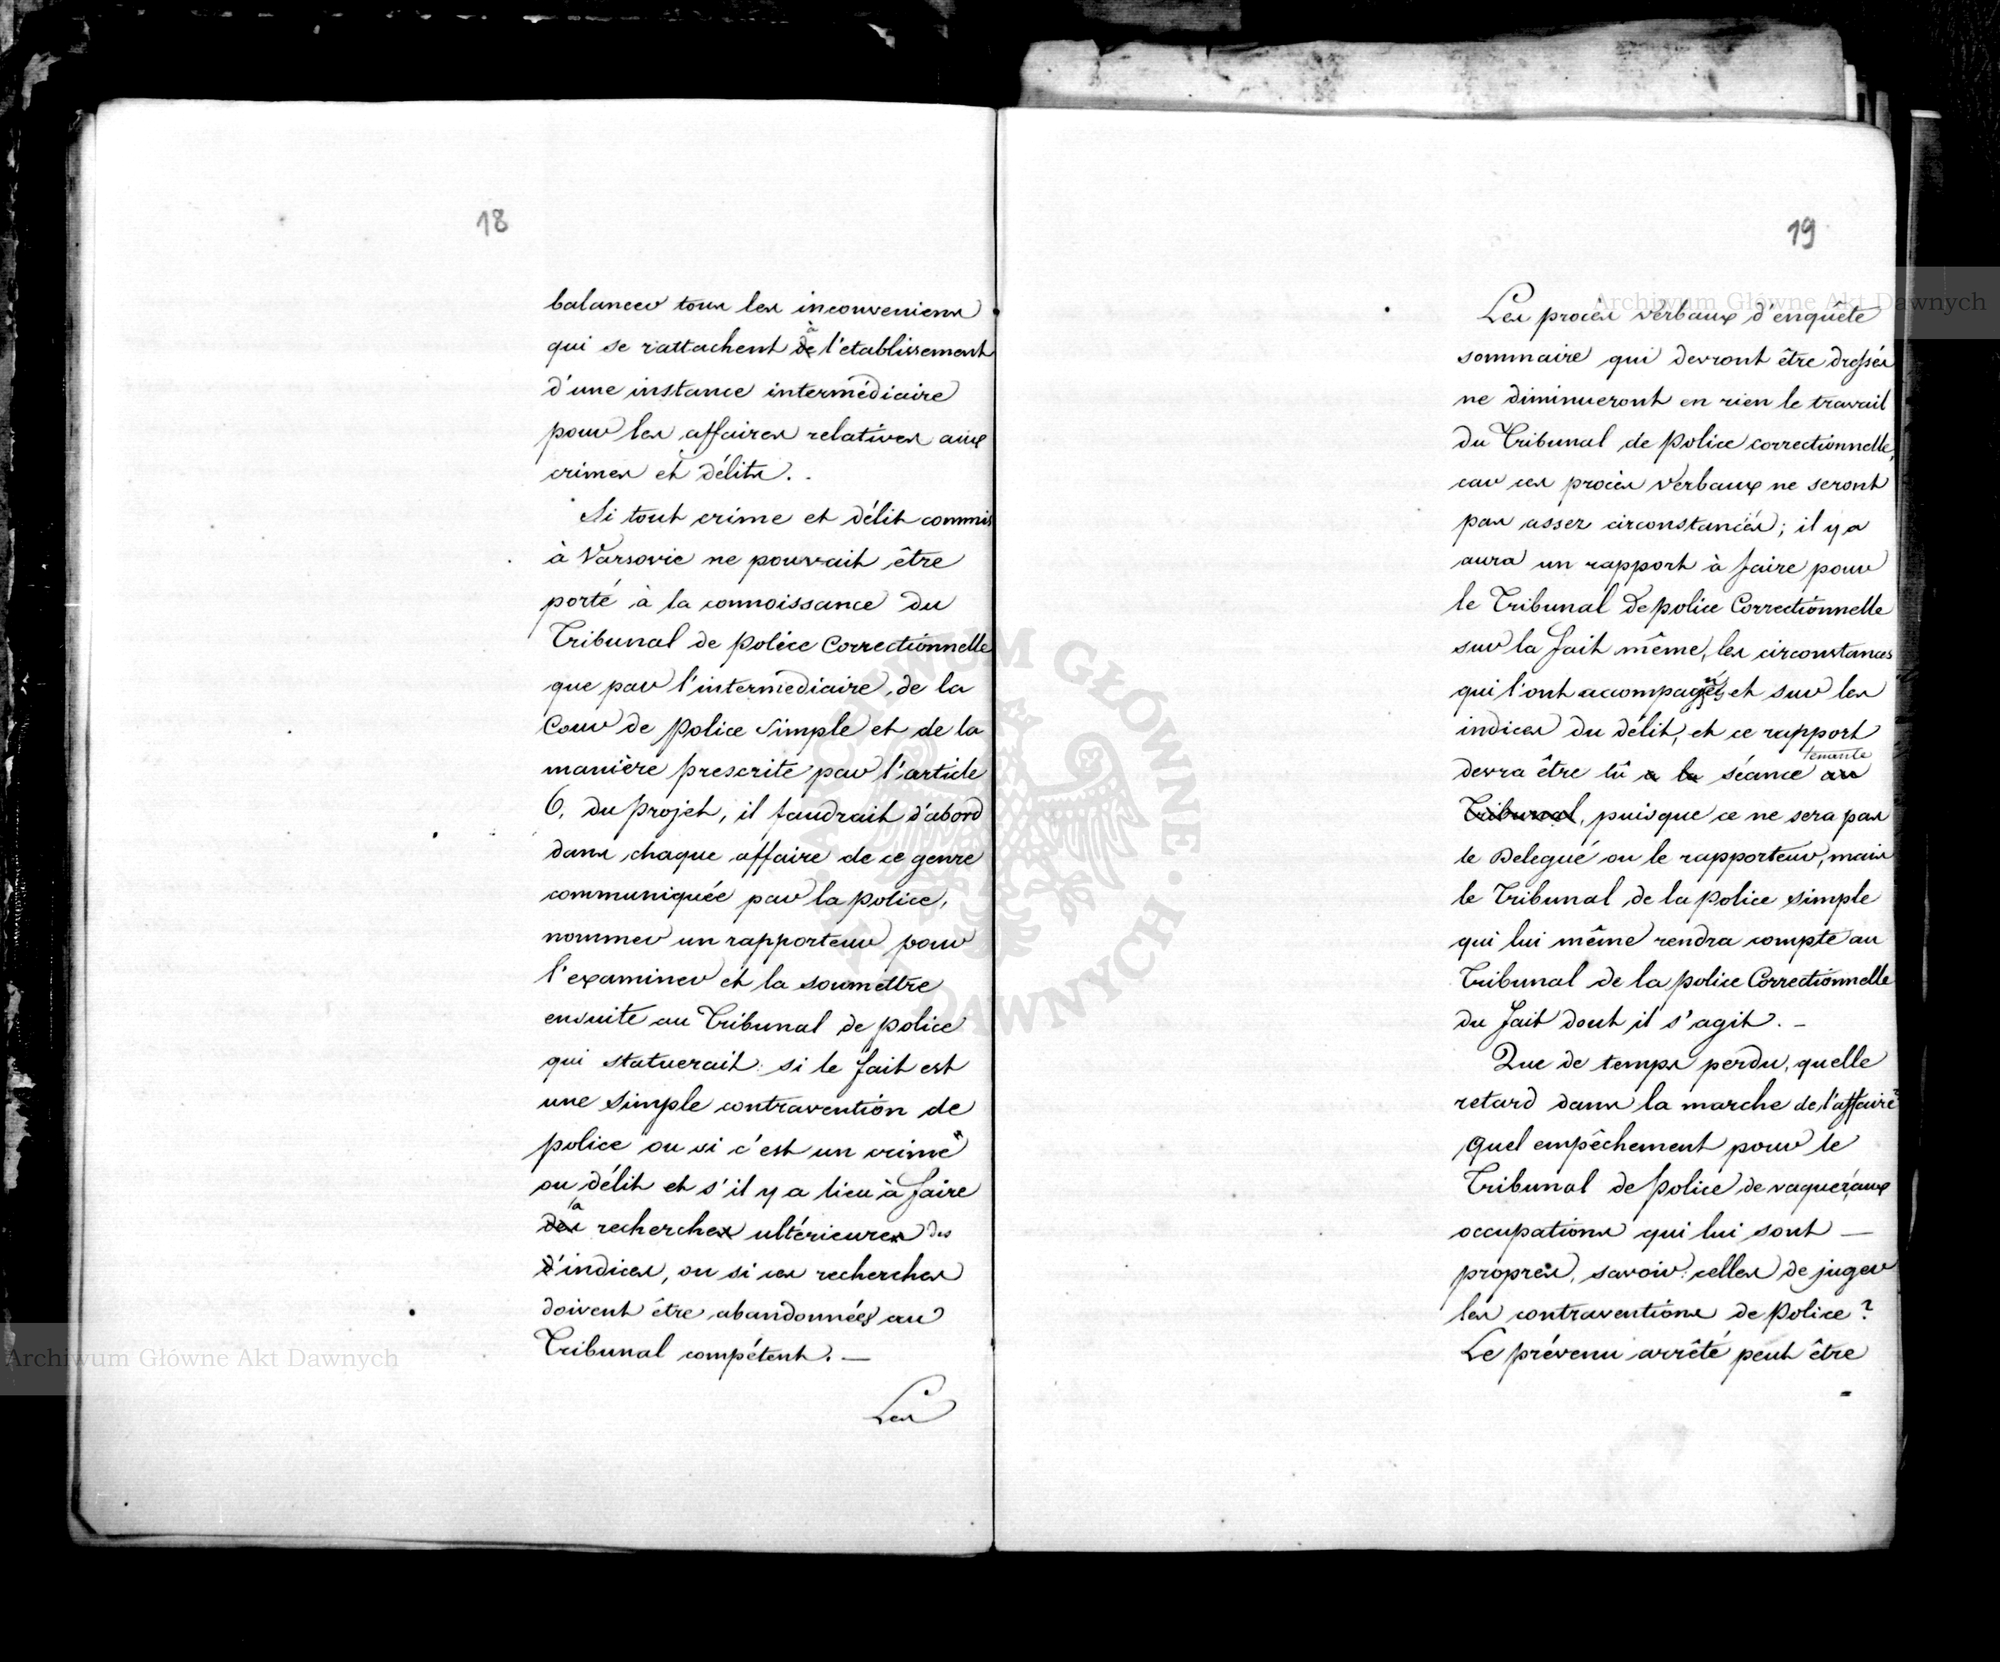 18
balancer tous les inconveniens
qui se rattachent de à l'etablissement
d'une instance intermédiaire
pour les affaires relatives aux
crimes et délits.
Si tout crime et délit commis
à Varsovie ne pouvait être
porté à la connoissance du
Tribunal de police Correctionnelle
que par l'intermediaire de la
Cour de police simple et de la
manière prescrite par l'article
6. du projet, il faudrait d'abord
dans chaque affaire de ce genre
communiquée par la police,
nommer un rapporteur pour
l'examiner et la soumettre
ensuite au Tribunal de police
qui statuerait: si le fait est
une simple contravention de
police ou si c'est un crime
ou délit et s'il y a lieu à faire
des la recherches ultérieures des
d'indices, ou si ces recherches
doivent être abandonnées au
Tribunal compétent. —
Les
19
Les procès verbaux d'enquête
sommaire qui devront être dressés
ne diminueront en rien le travail
du Tribunal de police correctionnelle,
car ces procès verbaux ne seront
pas assez circonstanciés; il y a
aura un rapport à faire pour
le Tribunal de police Correctionnelle
sur la fait même, les circonstances
qui l'ont accompagnés et sur les
indices du délit, et ce rapport
devra être lû a la séance tenante au
Tribunal, puisque ce ne sera pas
le Delegué ou le rapporteur, mais
le Tribunal de la police simple
qui lui même rendra compte au
Tribunal de la police Correctionnelle
du fait dont il s'agit. —
Que de temps perdu, quelle
retard dans la marche de l'affaire
quel empêchement pour le
Tribunal de police de vaquer aux
occupations qui lui sont —
propres, savoir: celles de juger
les contraventions de police?
Le prévenu arrêté peut être
Archiwum Główne Akt Dawnych
Archiwum Główne Akt Dawnych
ARCHIWUM GŁÓWNE AKT DAWNYCH